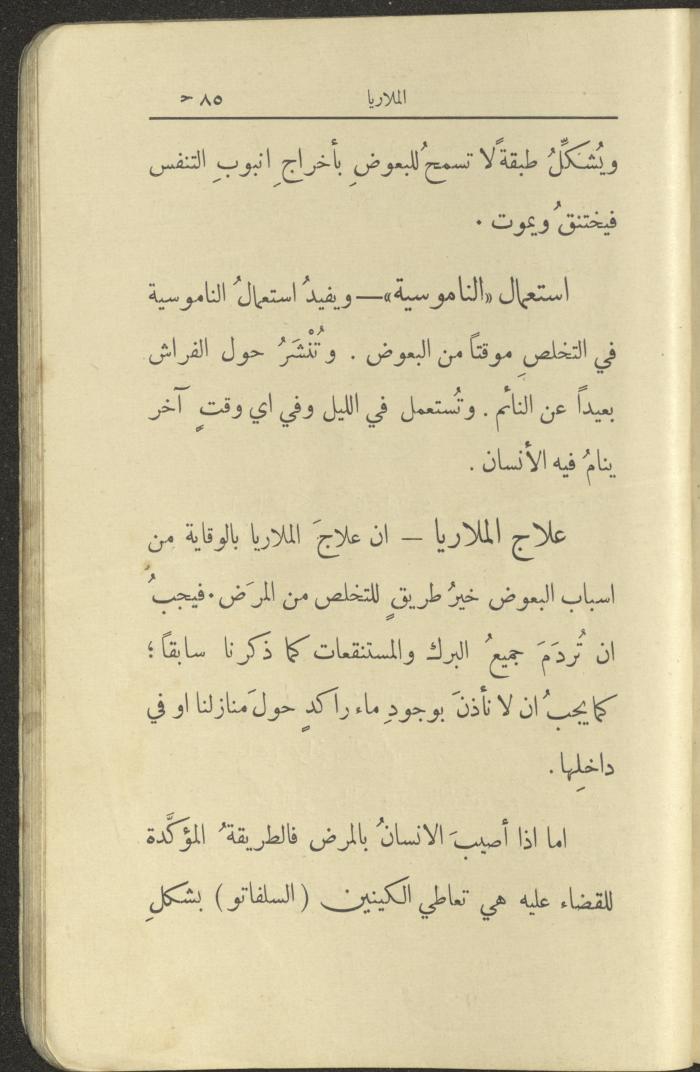 الملاريا ٨٥
ويُشكِّلُ طبقةً لا تسمحُ للبعوضِ بأخراجِ انبوبِ التنفس
فيختنقُ ويموت ٠
استعمال «الناموسية» — ويفيدُ استعمالُ الناموسية
في التخلصِ موقتاً من البعوض . وتُنْشَرُ حول الفراش
بعيداً عن النائم . وتُستعمل في الليل وفي اي وقتٍ آخر
ينامُ فيه الأنسان .
علاج الملاريا — ان علاجَ الملاريا بالوقاية من
اسباب البعوض خيرُ طريقٍ للتخلص من المرَض ٠ فيجبُ
ان تُردَمَ جميعُ البرك والمستنقعات كما ذكرنا سابقاً ؛
كما يجبُ ان لا نأذنَ بوجودِ ماء راكدٍ حولَ منازلنا او في
داخلِها .
اما اذا أصيبَ الانسانُ بالمرض فالطريقةُ المؤكَّدة
للقضاء عليه هي تعاطي الكينين ( السلفاتو ) بشكلِ